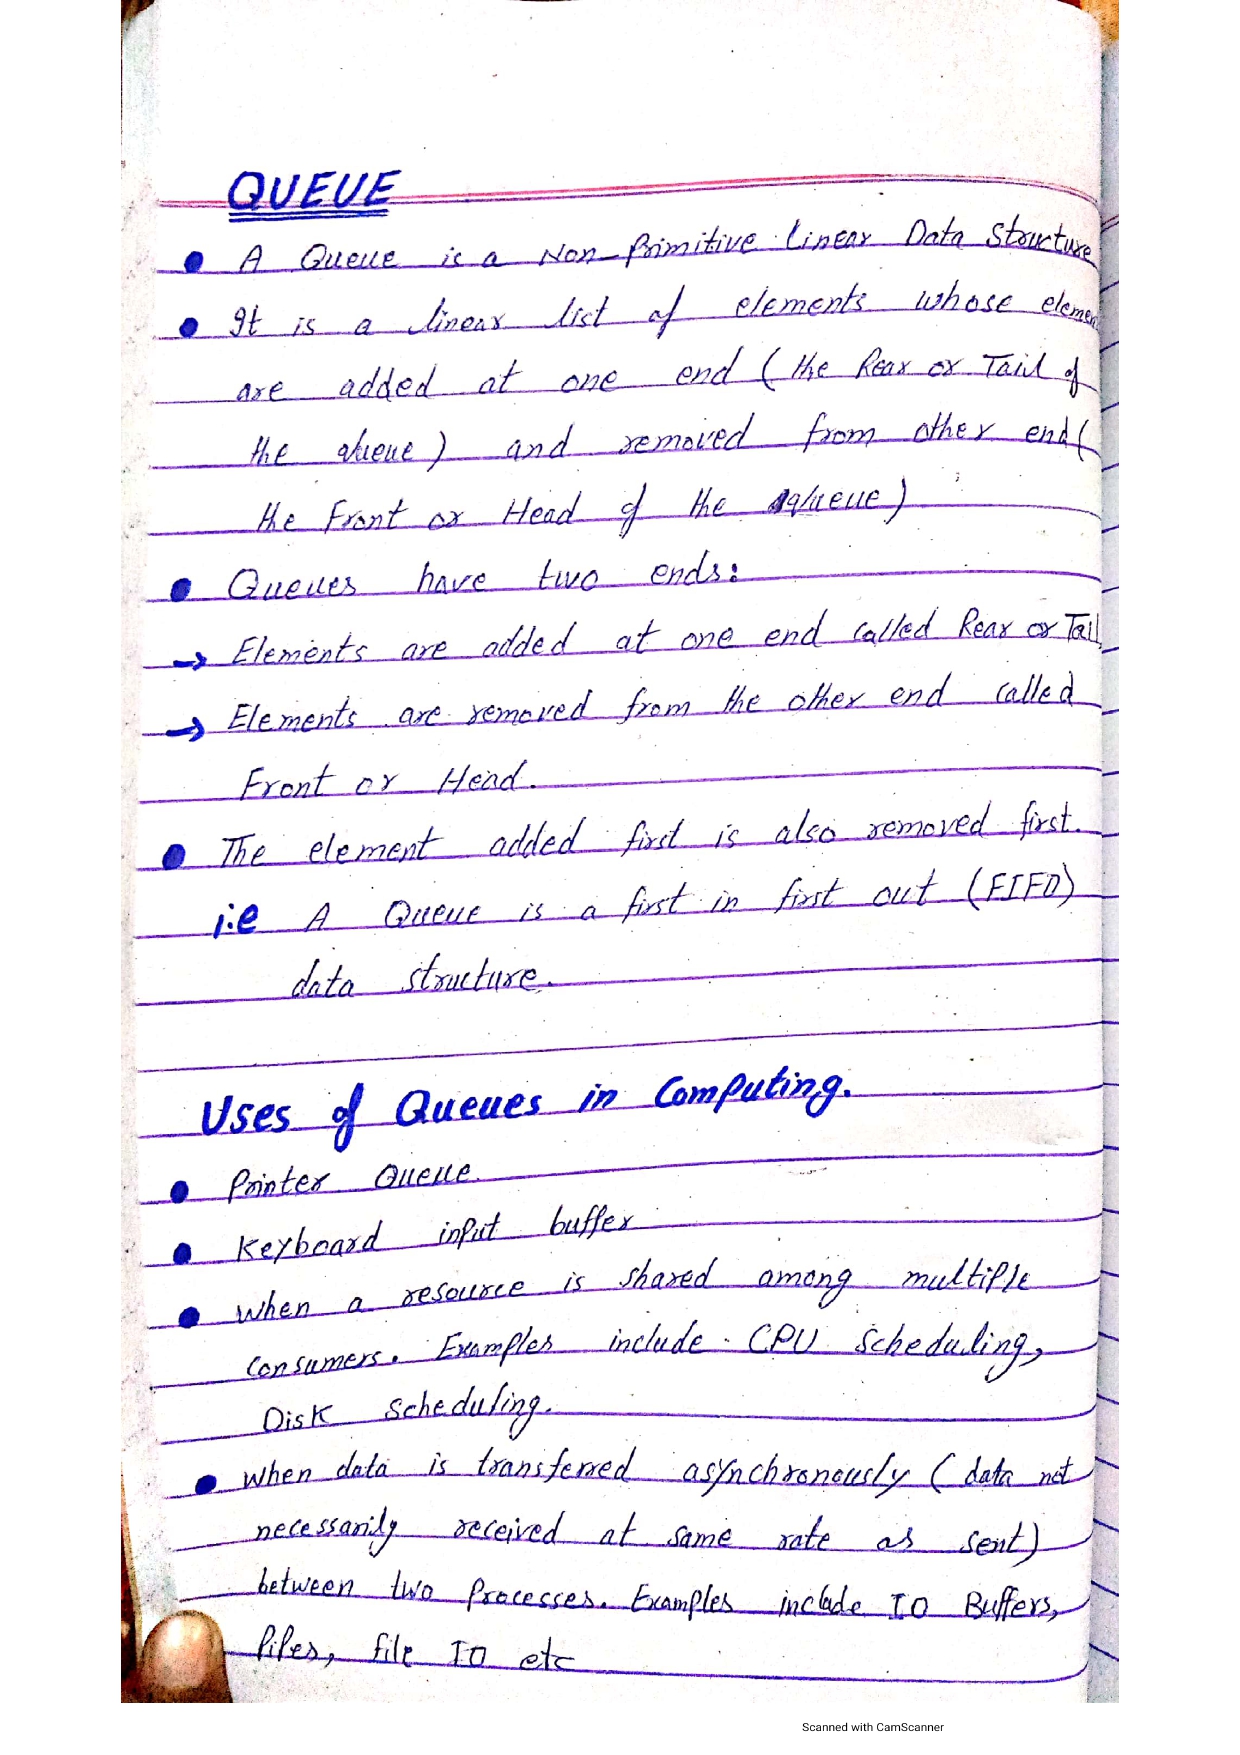 QUEUE
A Queue is a Non-Primitive Linear Data Structure
It is a linear list of elements whose elemen
are added at one end (the Rear or Tail of
the queue) and removed from other end(
the Front or Head of the queue)
Queues have two ends:
→ Elements are added at one end called Rear or Tail
→ Elements are removed from the other end called
Front or Head.
The element added first is also removed first.
i.e A Queue is a first in first out (FIFO)
data structure.
Uses of Queues in Computing.
Printer Queue.
Keyboard input buffer
When a resource is shared among multiple
consumers. Examples include CPU Scheduling,
Disk Scheduling.
When data is transferred asynchronously (data not
necessarily received at same rate as sent)
between two Processes. Examples include IO Buffers,
Pipes, file IO etc
Scanned with CamScanner